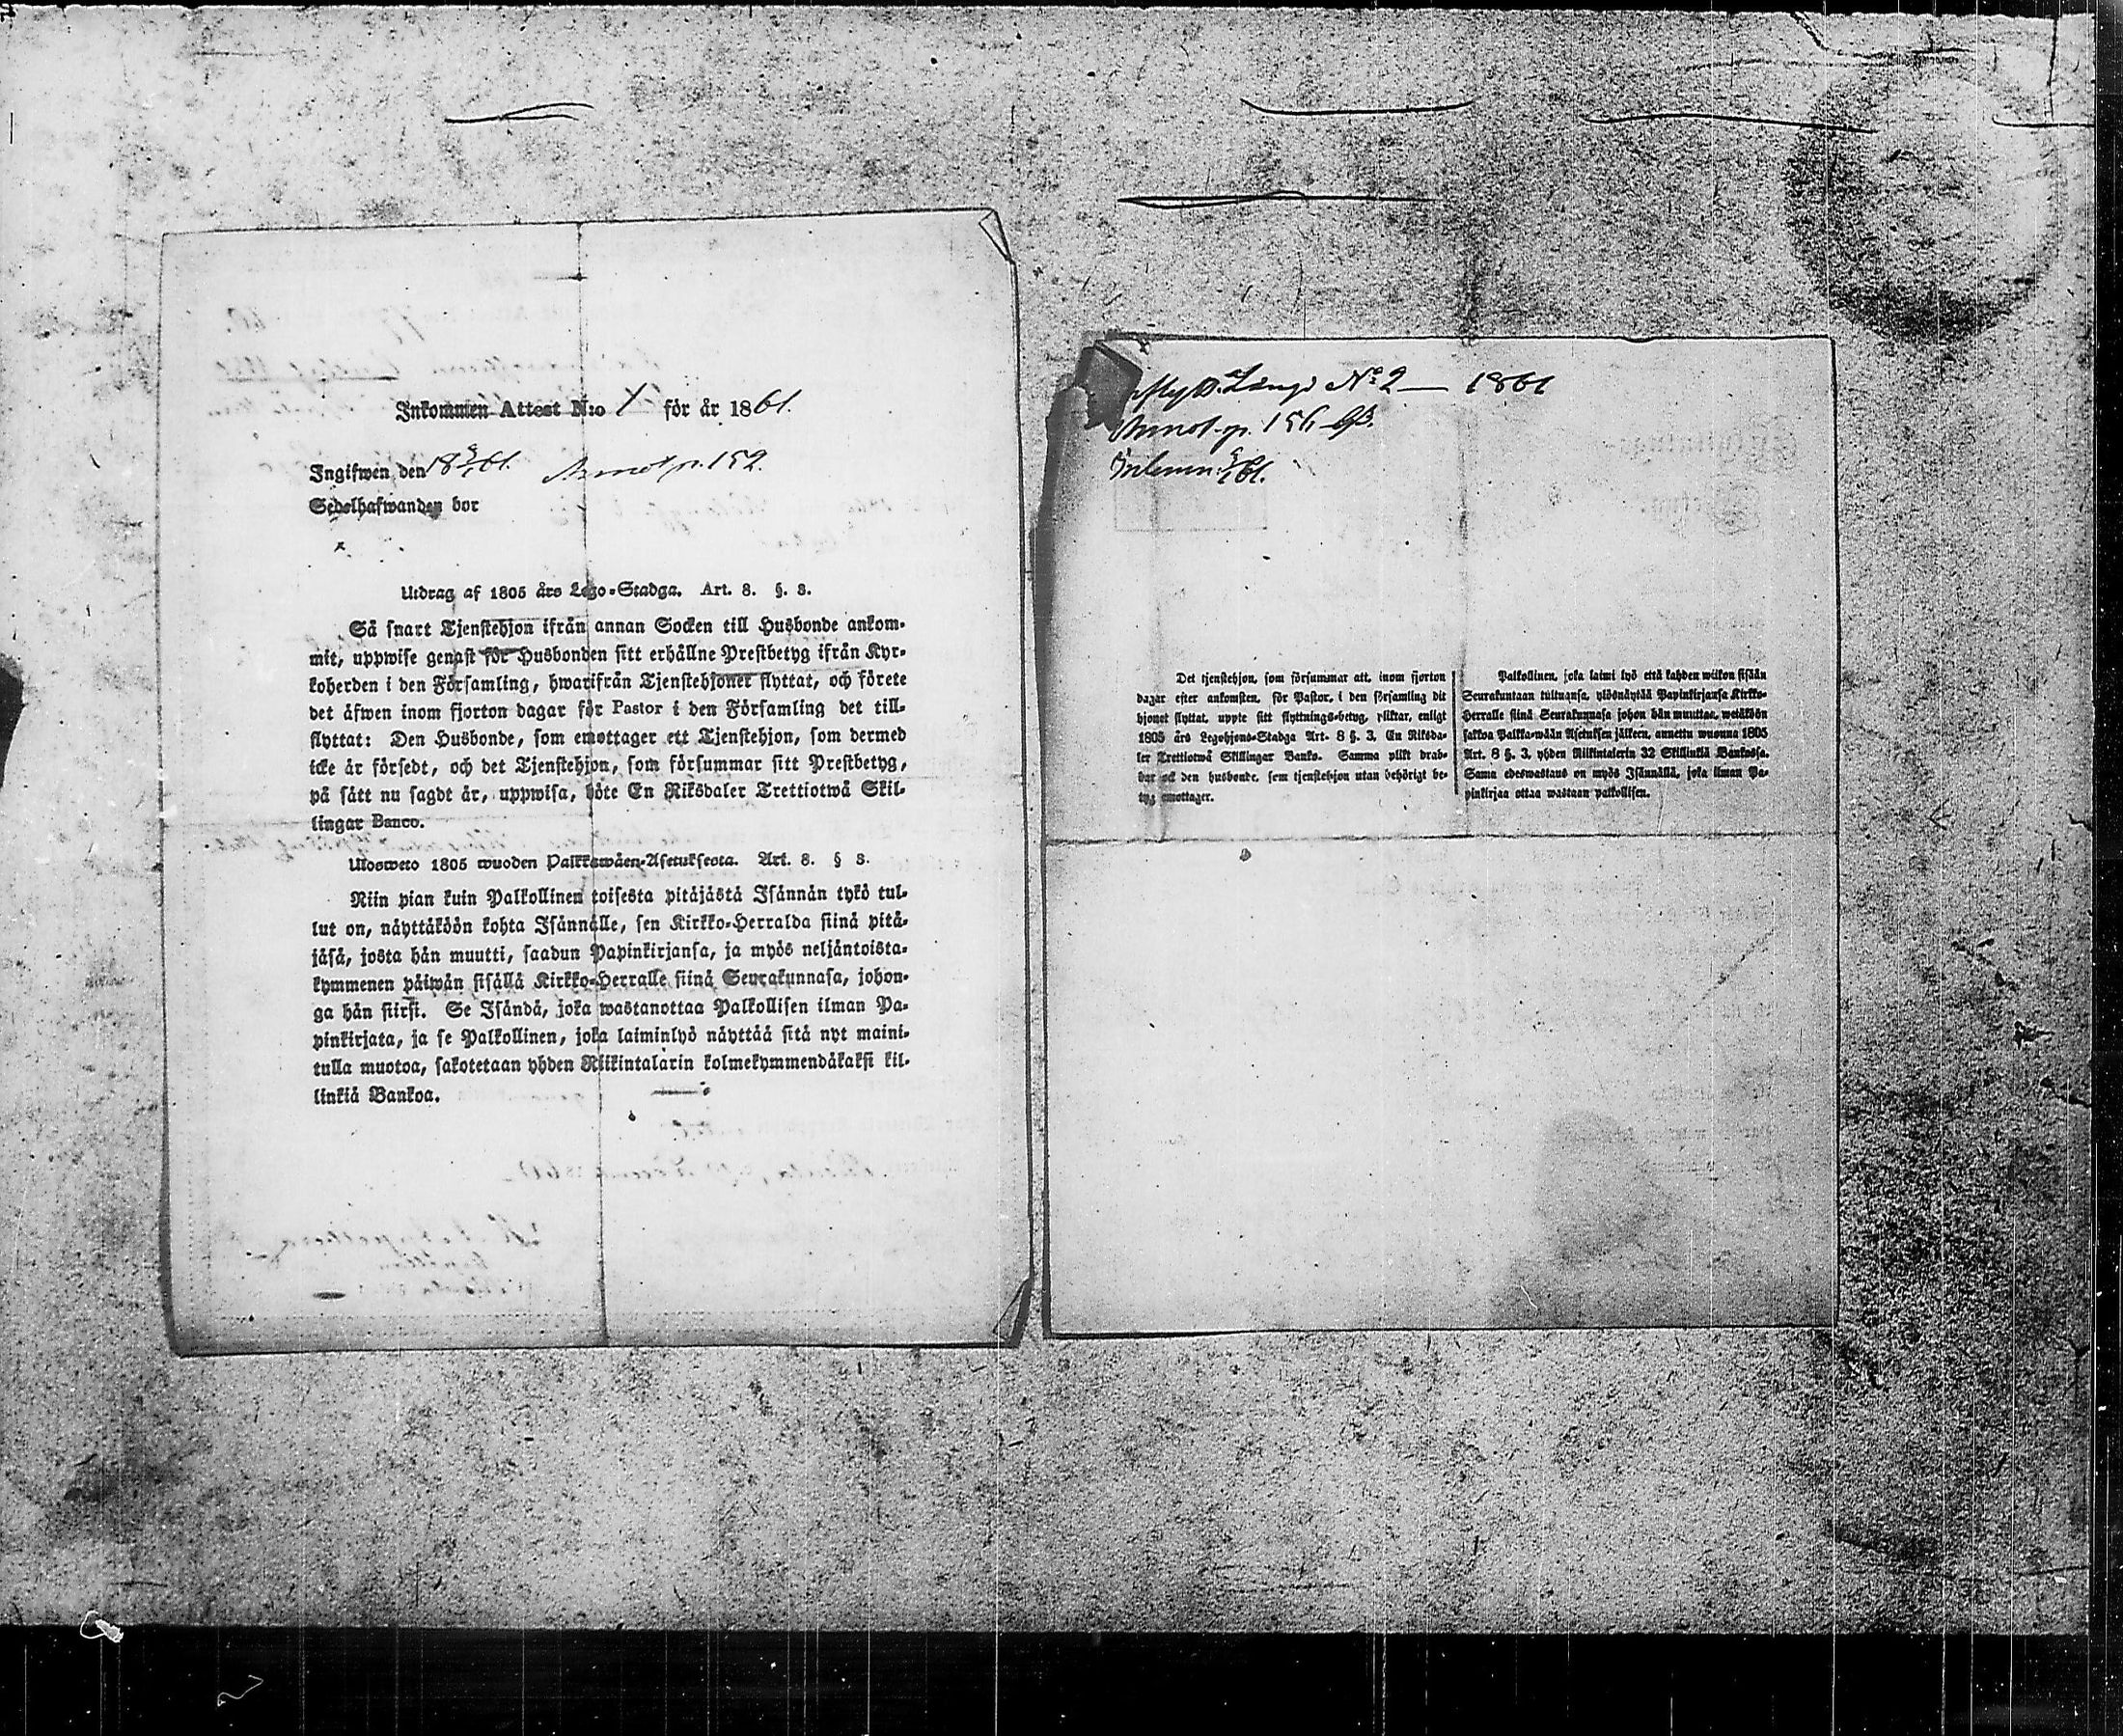 Inkommen Attest N:o 1 för år 1861.
Ingifwen den 18 3/1 61. Annot p. 152.
Sedelhafwanden bor
Utdrag af 1805 års Lego-Stadga. Art. 8. §. 3.
Så snart Tjenstehjon ifrån annan Socken till Husbonde ankom-
mit, uppwise genast för Husbonden sitt erhållne Prestbetyg ifrån Kyr-
koherden i den Församling, hwarifrån Tjenstehjonet flyttat, och förete
det äfwen inom fjorton dagar för Pastor i den Församling det till-
flyttat: Den Husbonde, som emottager ett Tjenstehjon, som dermed
icke är försedt, och det Tjenstehjon, som försummar sitt Prestbetyg,
på sätt nu sagdt är, uppwisa, böte En Riksdaler Trettiotwå Skil-
lingar Banco.
Ulosweto 1805 wuoden Palkkawäen-Asetuksesta. Art. 8. § 3.
Niin pian kuin Palkollinen toisesta pitäjästä Isännän tykö tul-
lut on, näyttäköön kohta Isännälle, sen Kirkko-Herralda siinä pitä-
jäsä, josta hän muutti, saadun Papinkirjansa, ja myös neljäntoista-
kymmenen päiwän sisällä Kirkko-Herralle siinä Seurakunnasa, johon-
ga hän siirsi. Se Isändä, joka wastanottaa Palkollisen ilman Pa-
pinkirjata, ja se Palkollinen, joka laiminlyö näyttää sitä nyt maini-
tulla muotoa, sakotetaan yhden Riikintalarin kolmekymmendäkaksi kil-
linkiä Bankoa.
Längd No 2 — 1861
Annot. p. 156
Inlemn. 61.
Det tjenstehjon, som försummar att, inom fjorton
dagar efter ankomsten, för Pastor, i den församling dit
hjonet flyttat, uppte sitt flyttnings-betyg, pliktar, enligt
1805 års Legohjons-Stadga Art. 8 §. 3. En Riksda-
ler Trettiotwå Skillingar Banko. Samma plikt drab-
bar ock den husbonde, som tjenstehjon utan behörigt be-
tyg emottager.
Palkollinen, joka laimi lyö että kahden wiikon sisään
Seurakuntaan tultuansa, ylösnäytää Papinkirjansa Kirkko-
Herralle siinä Seurakunnasa johon hän muuttaa, wetäköön
sakkoa Palkka-wään Asetuksen jälkeen, annettu wuonna 1805
Art. 8 §. 3. yhden Riikintalerin 32 Skillinkiä Bankossa.
Sama edeswastaus on myös Isännällä, joka ilman Pa-
pinkirjaa ottaa wastaan palkollisen.